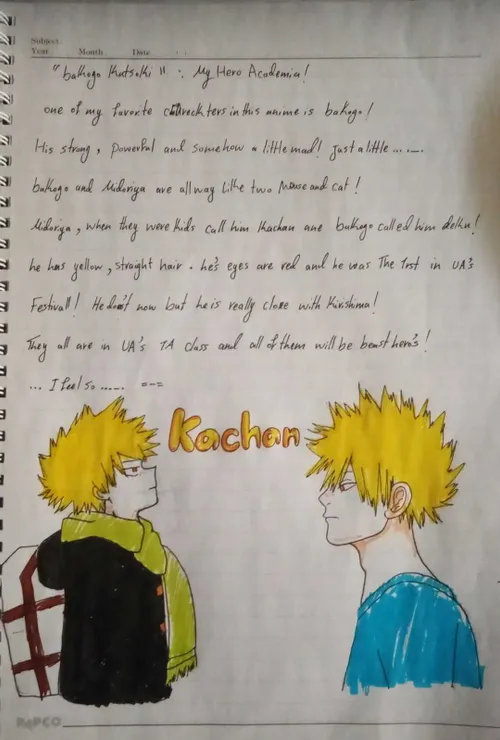 Subject
Year Month Date
"bakogo Kutsuki" : My Hero Academia!
one of my favorite chareckters in this anime is bakogo!
His strong, powerful and somehow a little mad! Just a little ......
bakogo and Midoriya are allway like two Mouse and cat!
Midoriya, when they were kids call him Kachan ane bakogo called him deku!
he has yellow, straight hair. he's eyes are red and he was The 1rst in UA's
Festivall! He dosn't now but he is really close with Kirishima!
They all are in UA's 1A class and all of them will be beast hero's!
... I feel so ...... =-=
Kachan
PAPCO